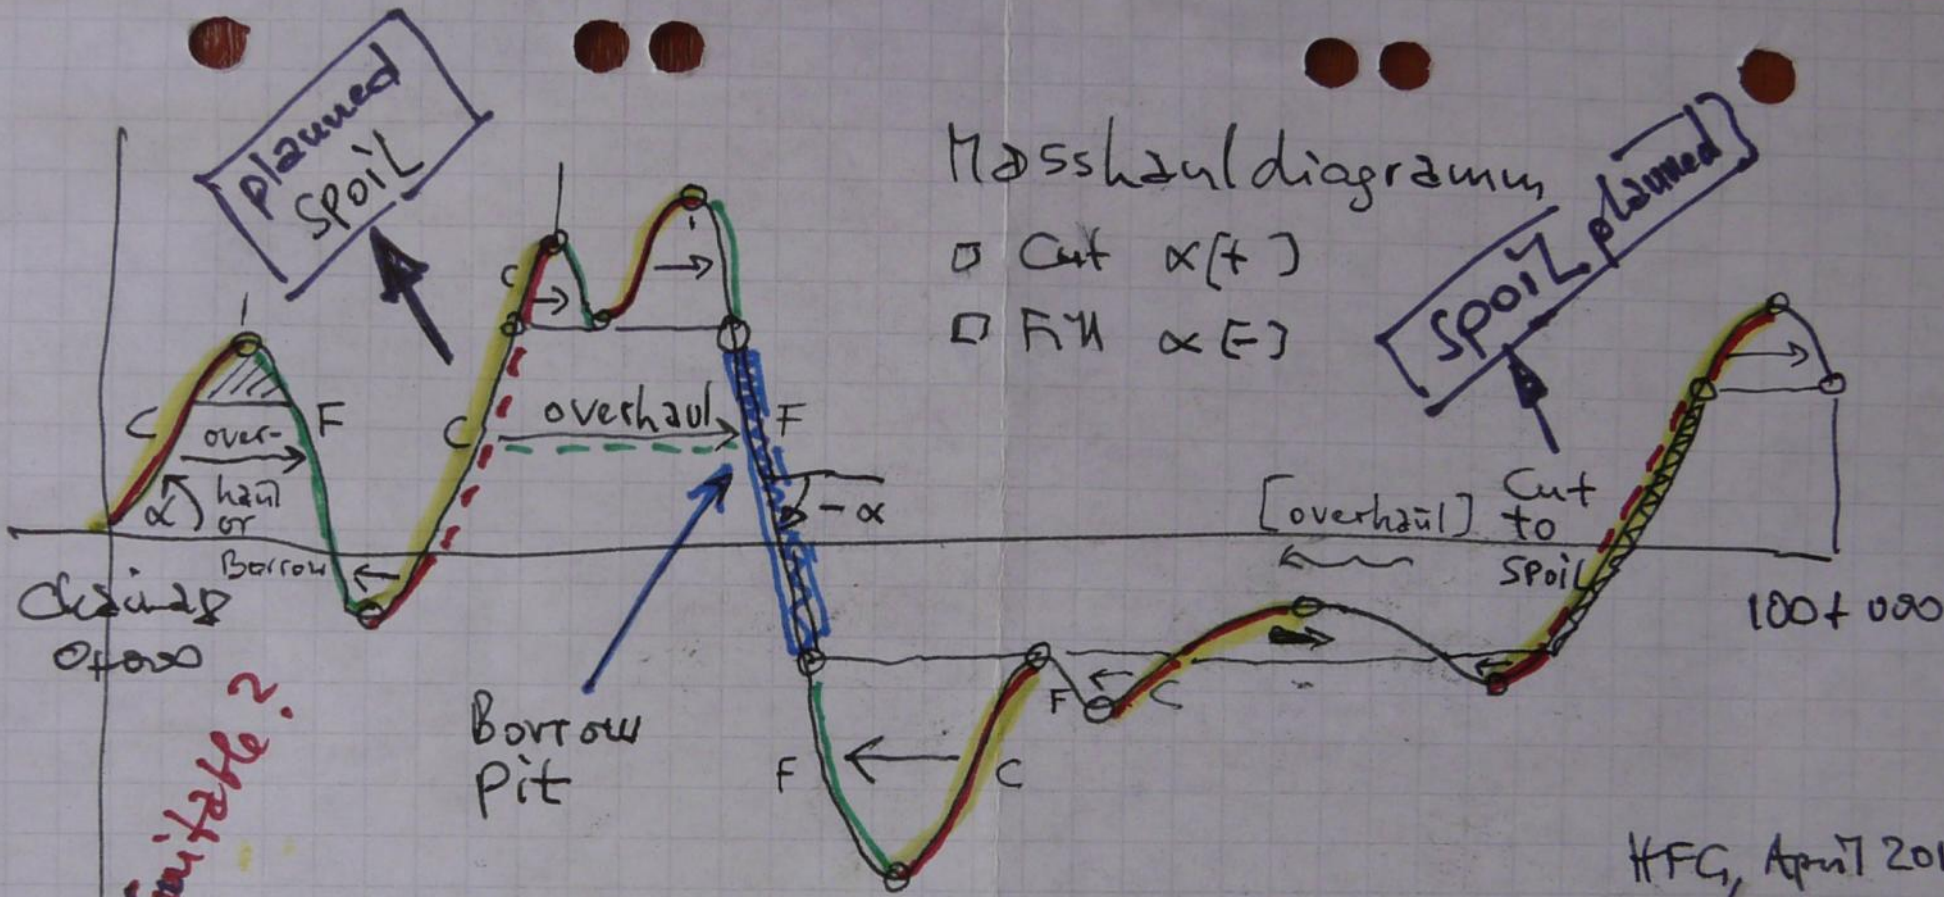 planned
SPOIL
Masshauldiagramm
Cut α[+]
Fill α[-]
SPOIL planned
C
F
over-
haul
or
Borrow
α
C
C
overhaul
F
- α
[overhaul]
Cut
to
SPOIL
0+000
100+000
Borrow
pit
F
C
F
C
HFG, April 201